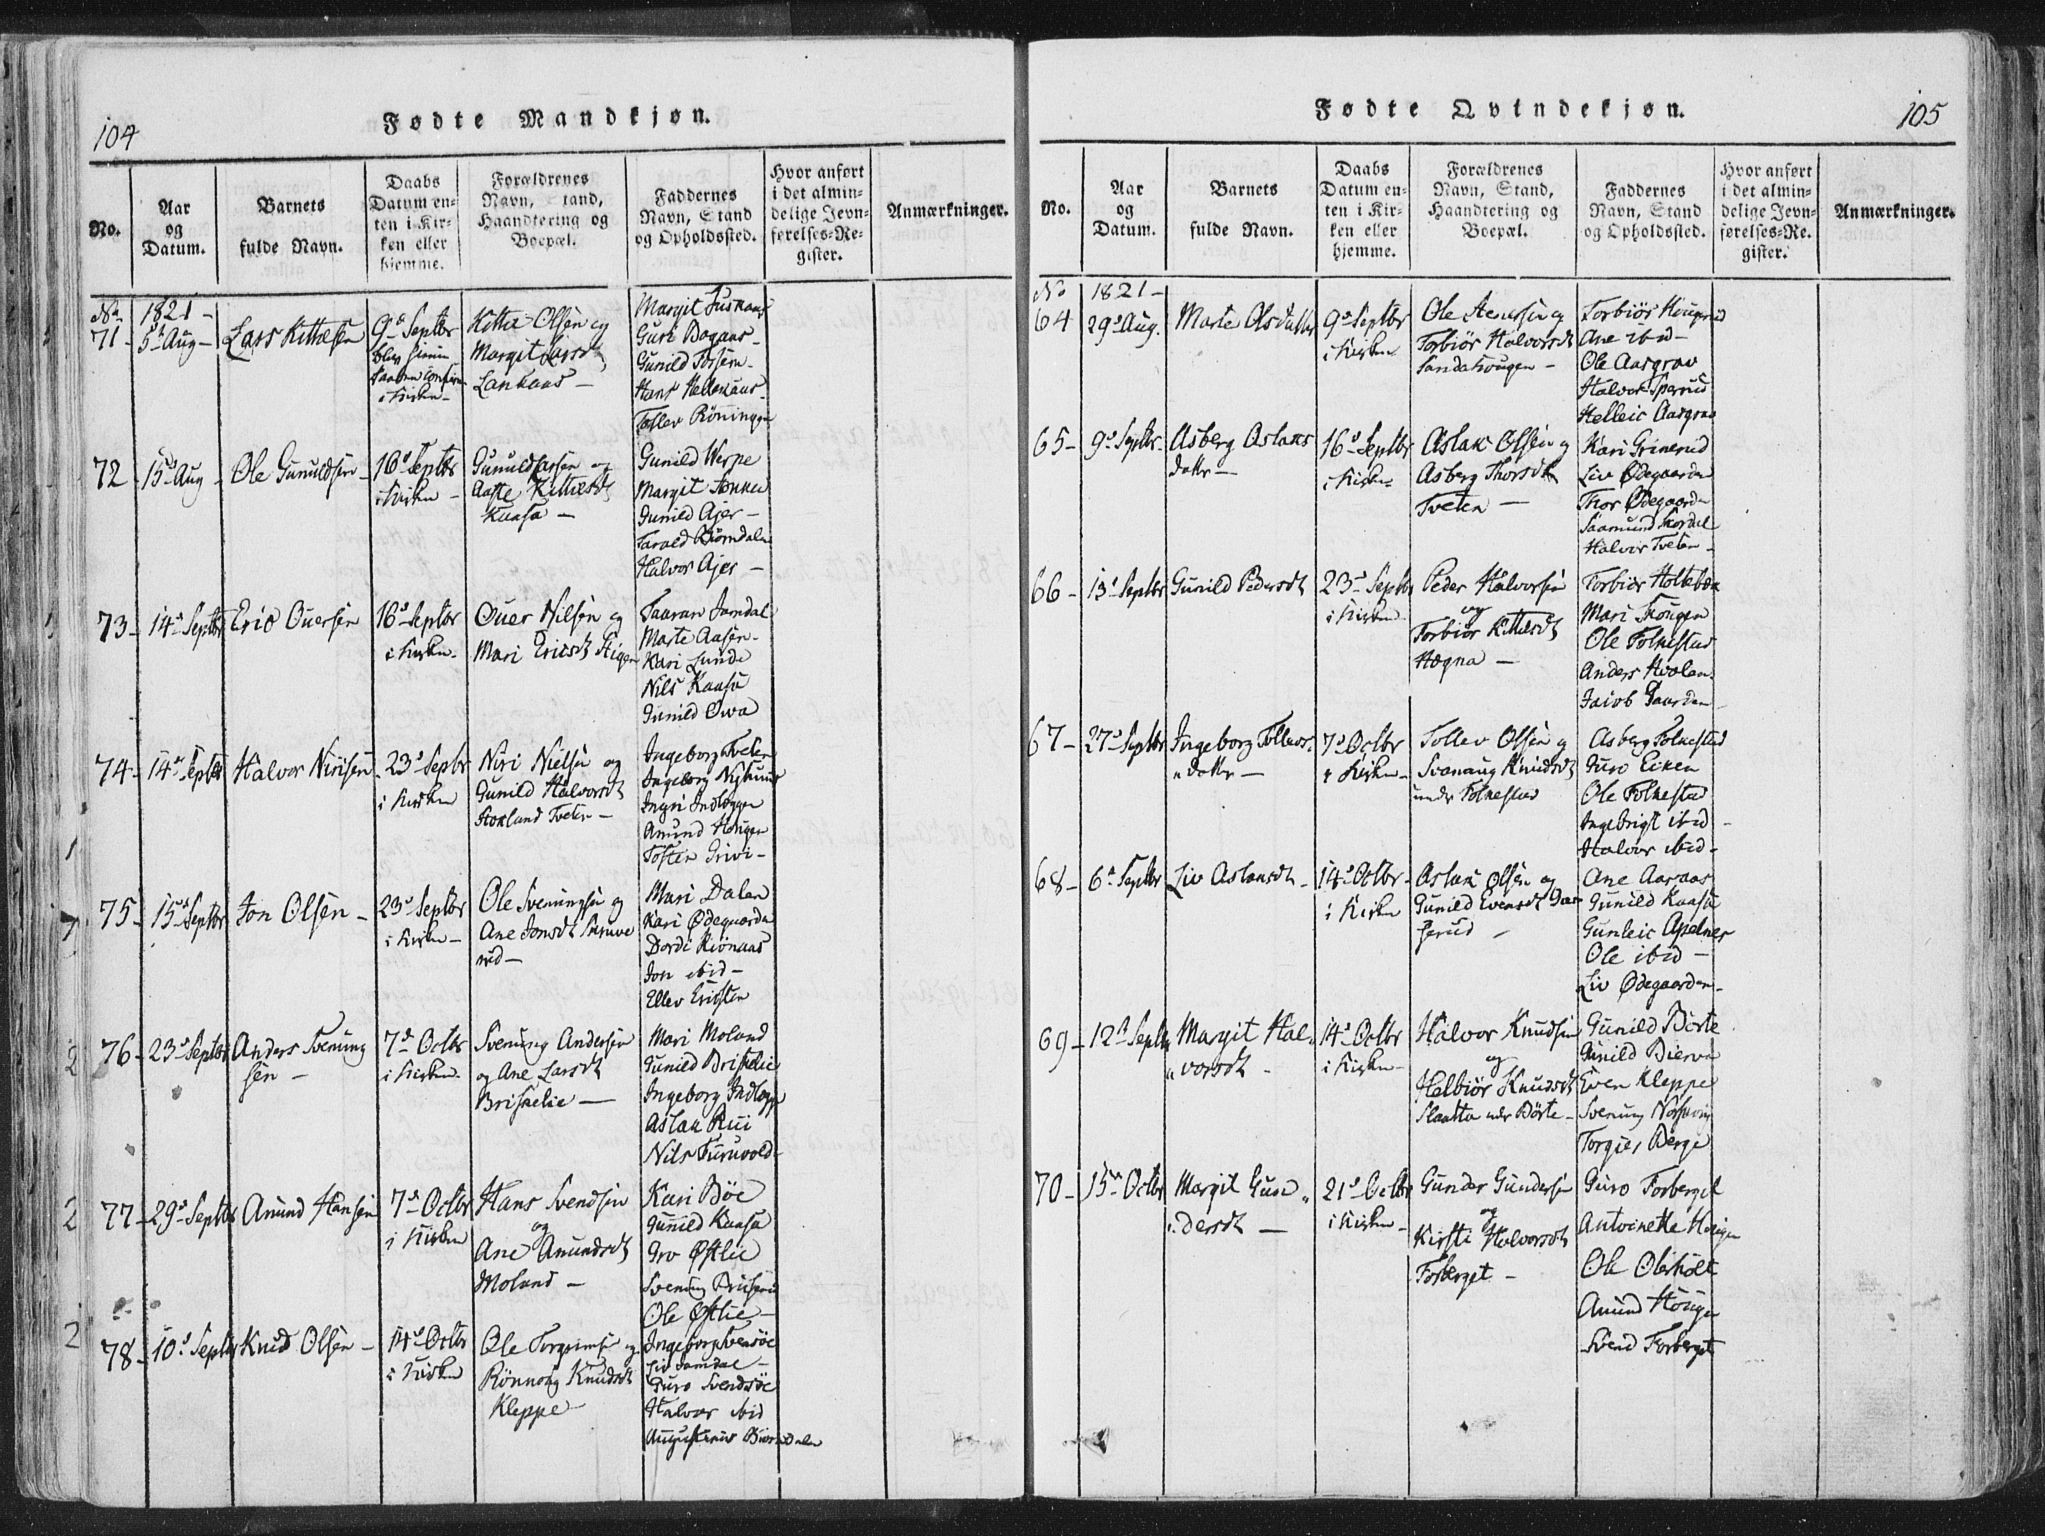 104
Fødte Mandkjøn.
No.
Aar
og
Datum.
Barnets
fulde Navn.
Daabs
Datum en-
ten i Kir-
ken eller
hjemme.
Forældrenes
Navn, Stand,
Haandtering og
Boepæl.
Faddernes
Navn, Stand
og Opholdssted.
Hvor anført
i det almin-
delige Jevn-
førelses-Re-
gister.
Anmærkninger.
No. 1821 -
71 - 5 Aug - Lars Kittelsen
9 Septbr
i Kirken -
Kittil Olsen og
Margit Larsd
Lankaas -
Margit
Guri Bogaas -
Gunild
Hans
Tollev Röningen
72 - 15 Aug - Ole Gunuldsen -
16 Septbr
i Kirken -
og
Aaste Kittilsdt
Kaasa -
Gunild Werpe
Margit
Gunild Ajer -
Tarald Biörndalen
Halvor Ajer -
73 - 14 Septbr Eric Ouersen
16 Septbr
i Kirken -
Ouer Nilsen og
Mari Ericsdt Stigen
Taaran Jamdal
Marte Aasen -
Kari Lunde
Nils Kaasa
Gunild Owa
74 - 14 Septbr Halvor Nirisen
23 Septbr
i Kirken
Niri Nielsen og
Gunild Halvorsdt
Stokland Tveten -
Ingeborg Tveten
Ingeborg
Ingri Indlæggen
Amund Hougen
Tosten Grivi -
75 - 15 Septbr Jon Olsen -
23 Septbr
i Kirken -
Ole Svenungsen og
Ane Jonsdt
rud -
Mari Dalen
Kari Ødegaarden
Dordi Kiönaas
Jon ibid -
Ellev
76 - 23 Septbr Anders Svenung
sen -
7 Octbr
i Kirken -
Svenung Andersen
og Ane Larsdt
Briskelie -
Mari Moland
Gunild Briskelie
Ingeborg
Aslak Rui
Nils Furuvold -
77 - 29 Septbr Amund Hansen
7 Octbr
i Kirken
Hans Svendsen
og
Ane Amundsdt
Moland -
Kari Böe
Gunild Kaasa
Gro Østlie
Svenung
Ole Østlie -
78 - 10 Septbr Knud Olsen -
14 Octbr
i Kirken
Ole Torgrimsen og
Rönnoug Knudsdt
Kleppe
Ingeborg Svensöe
Liv Jamdal -
Guro Svendsöe
Halvor ibid
Augustinus Biörndalen
105
Fødte Qvindekjøn.
No.
Aar
og
Datum.
Barnets
fulde Navn.
Daabs
Datum en-
ten i Kir-
ken eller
hjemme.
Forældrenes
Navn, Stand,
Haandtering og
Boepæl.
Faddernes
Navn, Stand
og Opholdssted.
Hvor anført
i det almin-
delige Jevn-
førelses-Re-
gister.
Anmærkninger.
No 1821 -
64 29 Aug. Marte Olsdatter
9 Septbr
i Kirken
Ole Stensen og
Torbiör Halvorsdt
Sandahougen -
Torbiör
Ane ibid -
Ole Aasgrav
Halvor
Helleic Aasgrav
65 - 9 Septbr. Asberg Aslaks
datter -
16 Septbr
i Kirken
Aslak Olsen og
Asberg Thorsdt
Tveten -
Kari Grinerud
Liv Ødegaarden
Thor Ødegaarden
Saamund
Halvor Tveten -
66 - 13 Septbr Gunild Pedersdt
23 Septbr
i Kirken
Peder Halvorsen
og
Torbiör Kittilsdt
Hogna -
Torbiör
Mari Hougen
Ole Folkestad
Anders Hvolen
Jacob Gaarden
67 - 27 Septbr Ingeborg Tollevs-
datter -
7 Octbr
i Kirken -
Tollev Olsen og
Svanaug Knudsdt
under Folkestad
Asberg Folkestad
Guro Eiken
Ole Folkestad
Ingebrigt ibid -
Halvor ibid -
68 - 6 Septbr Liv Aslaksdt -
14 Octbr -
i Kirken
Aslak Olsen og
Gunild Evensdt
serud -
Ane Aasaas
Gunild Kaasa
Gunleic Apelnes
Ole ibid -
Liv Ødegaarden -
69 - 12 Septbr Margit Hal-
vorsdt -
14 Octbr
i Kirken -
Halvor Knudsen
og
Helbiör Knudsdt
Slaatta undr Börte -
Gunild Börte
Gunild Bierva
Even Kleppe
Svenung
Torgier Berge
70 - 15 Octbr Margit Gun-
dersdt -
21 Octbr
i Kirken -
Gunder Gundersen
og
Kirsti Halvorsdt
Forberget -
Guro Forberget
Antoinette Hougen
Ole Olsholt
Amund Hougen
Svend Forberget